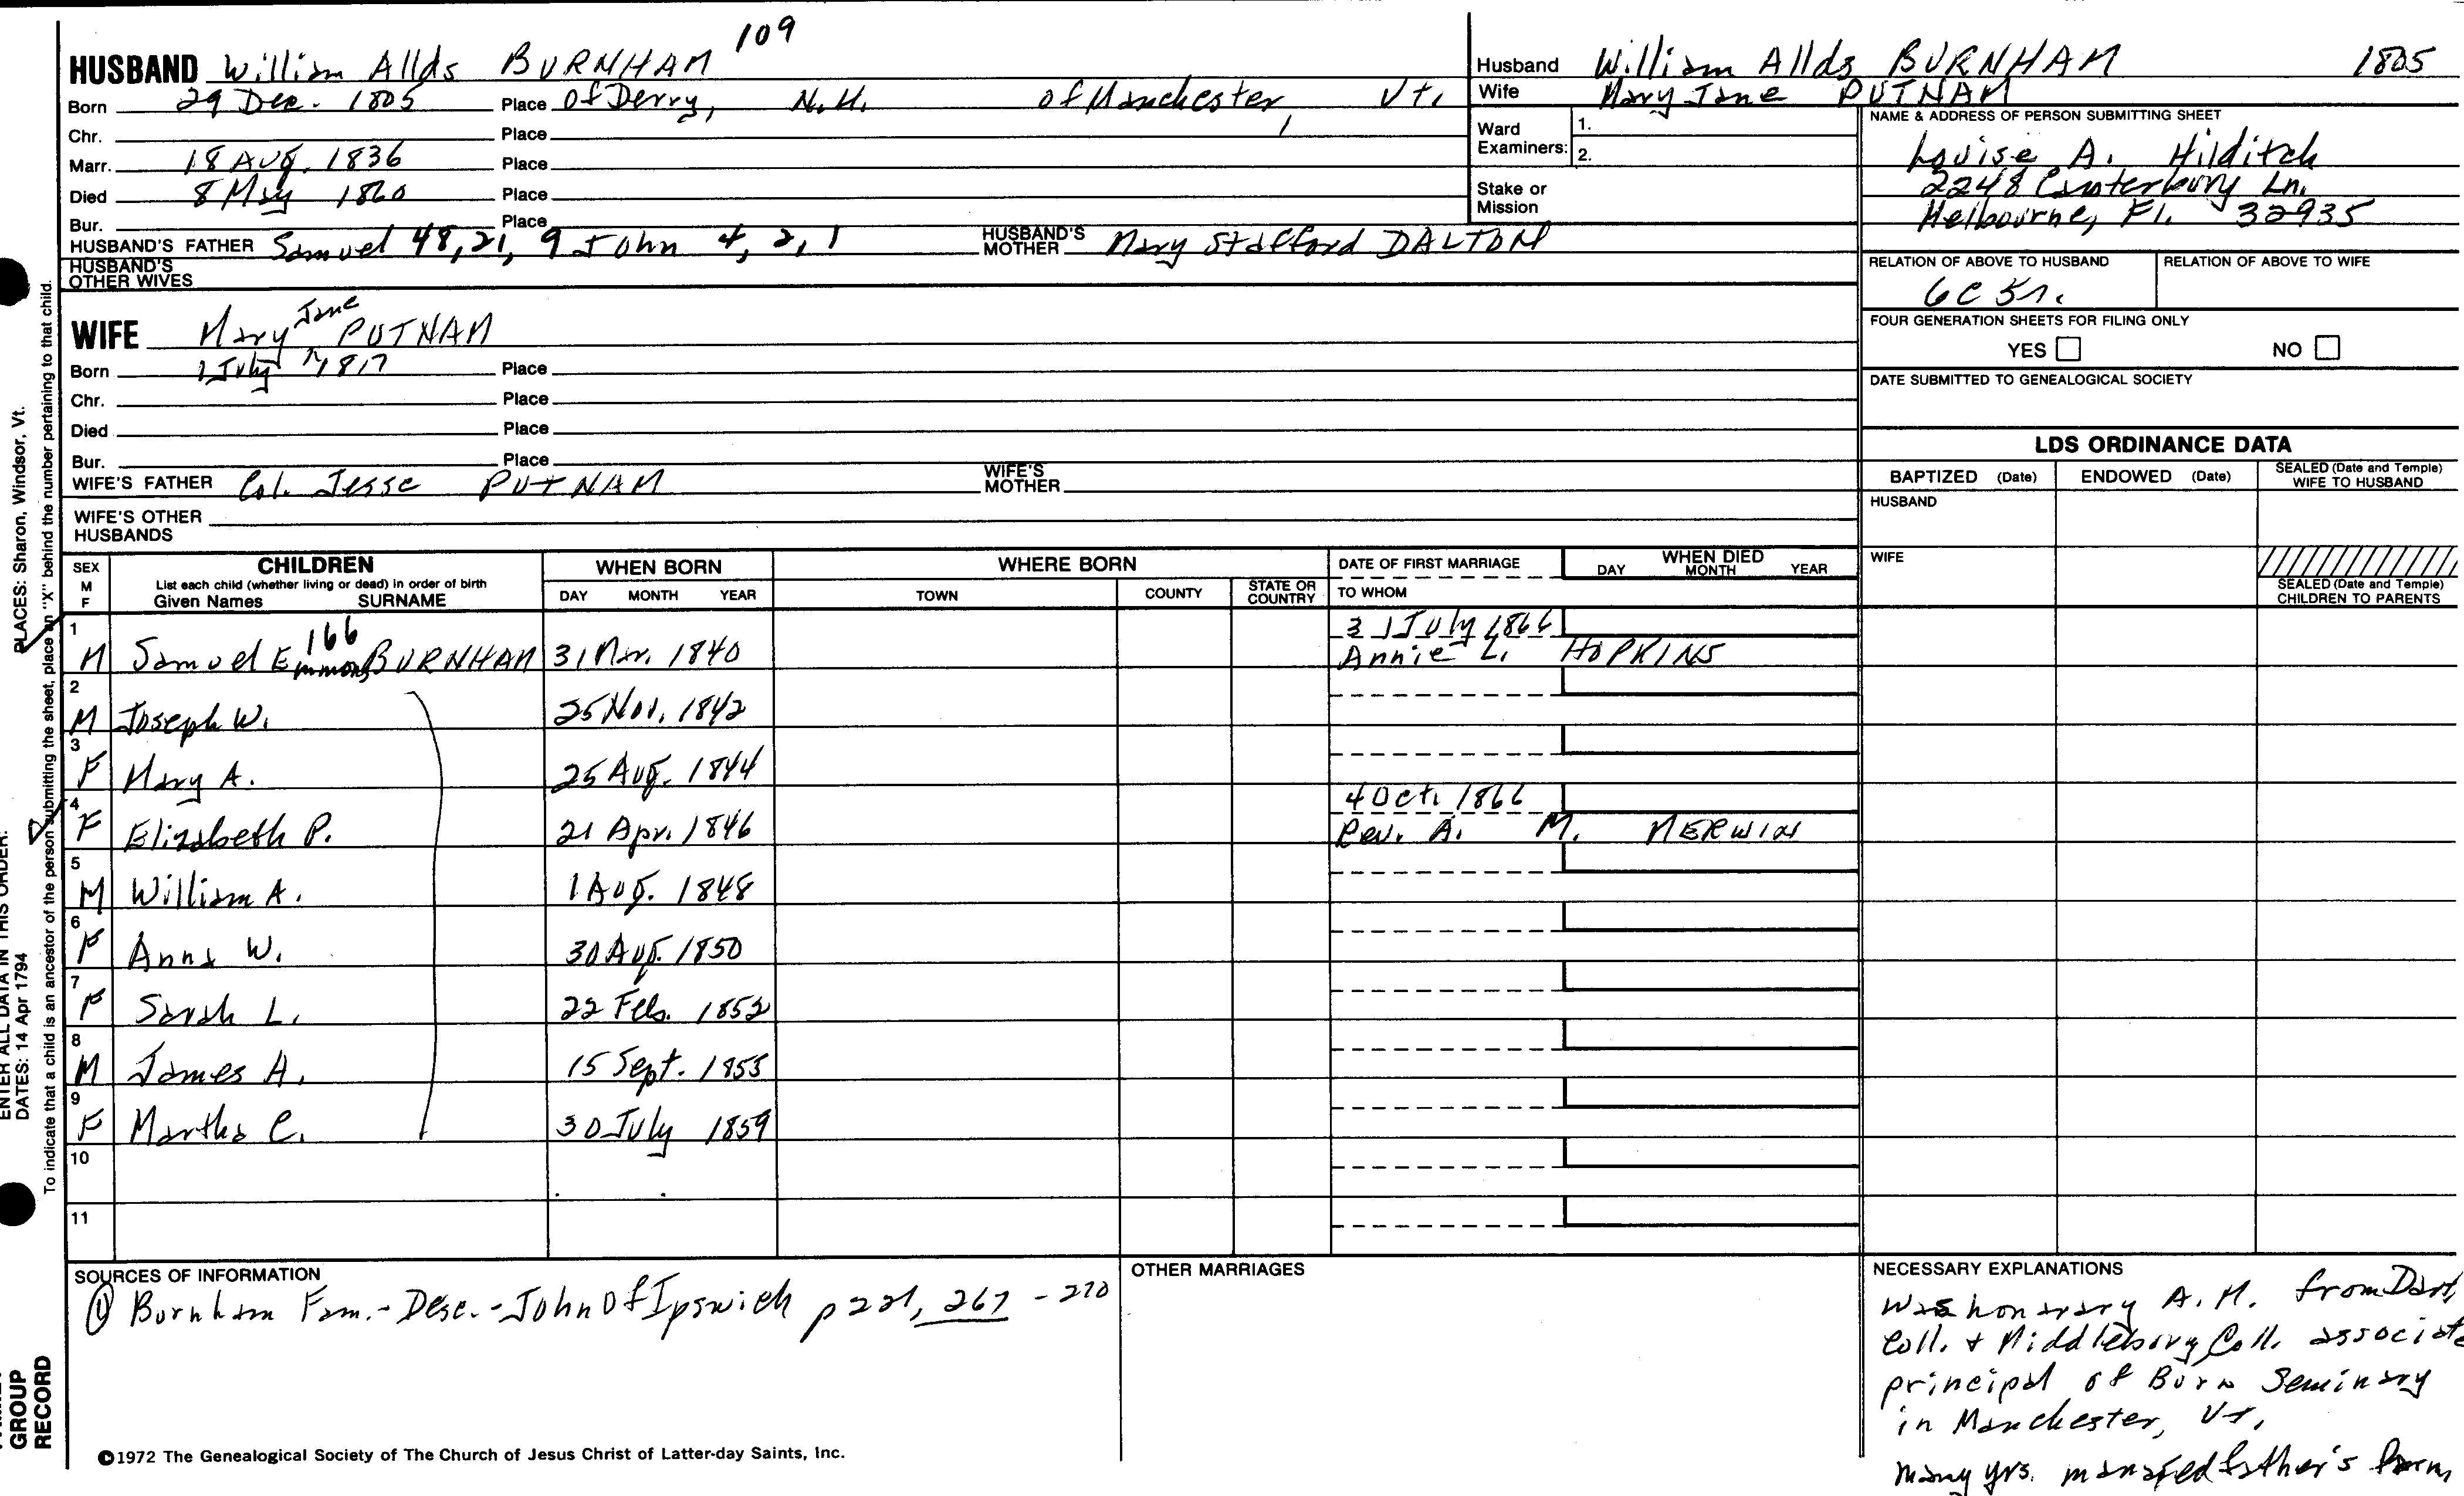 109
HUSBAND William Allds BURNHAM
Born 29 Dec. 1805 Place Of Derry, N.H. of Manchester, Vt.
Chr. Place
Marr. 18 Aug. 1836 Place
Died 8 May 1860 Place
Bur. Place
HUSBAND'S FATHER Samuel 48, 21, 9 John 4, 2, 1 HUSBAND'S MOTHER Mary Stafford DALTON
HUSBAND'S OTHER WIVES
WIFE Mary Jane PUTNAM
Born 1 July 1817 Place
Chr. Place
Died Place
Bur. Place
WIFE'S FATHER Col. Jesse PUTNAM WIFE'S MOTHER
WIFE'S OTHER HUSBANDS
Husband William Allds BURNHAM 1805
Wife Mary Jane PUTNAM
Ward Examiners: 1.
2.
Stake or Mission
NAME & ADDRESS OF PERSON SUBMITTING SHEET
Louise A. Hilditch
2248 Canterbury Ln.
Melbourne, Fl. 32935
RELATION OF ABOVE TO HUSBAND RELATION OF ABOVE TO WIFE
6C 5r.
FOUR GENERATION SHEETS FOR FILING ONLY
YES NO
DATE SUBMITTED TO GENEALOGICAL SOCIETY
LDS ORDINANCE DATA
BAPTIZED (Date) ENDOWED (Date) SEALED (Date and Temple) WIFE TO HUSBAND
HUSBAND
WIFE
SEALED (Date and Temple) CHILDREN TO PARENTS
SEX M F CHILDREN WHEN BORN WHERE BORN DATE OF FIRST MARRIAGE WHEN DIED
List each child (whether living or dead) in order of birth
Given Names SURNAME DAY MONTH YEAR TOWN COUNTY STATE OR COUNTRY TO WHOM DAY MONTH YEAR
1 M Samuel Emmons 166 BURNHAM 31 Mar. 1840 31 July 1866
Annie L. HOPKINS
2 M Joseph W. 25 Nov. 1842
3 F Mary A. 25 Aug. 1844
4 F Elizabeth P. 21 Apr. 1846 4 Oct. 1866
Rev. A. M. MERWIN
5 M William A. 1 Aug. 1848
6 F Anna W. 30 Aug. 1850
7 F Sarah L. 22 Feb. 1852
8 M James A. 15 Sept. 1855
9 F Martha C. 30 July 1859
10
11
SOURCES OF INFORMATION
① Burnham Fam. - Desc. - John Of Ipswich p 221, 267 - 270
OTHER MARRIAGES
NECESSARY EXPLANATIONS
Was honorary A.M. from Dart,
Coll. + Middlebury Coll. associate
principal of Burn Seminary
in Manchester, Vt.
many yrs. managed father's farm
©1972 The Genealogical Society of The Church of Jesus Christ of Latter-day Saints, Inc.
PLACES: Sharon, Windsor, Vt.
To indicate that a child is an ancestor of the person submitting the sheet, place an "X" behind the number pertaining to that child.
ENTER ALL DATA IN THIS ORDER:
DATES: 14 Apr 1794
GROUP
RECORD